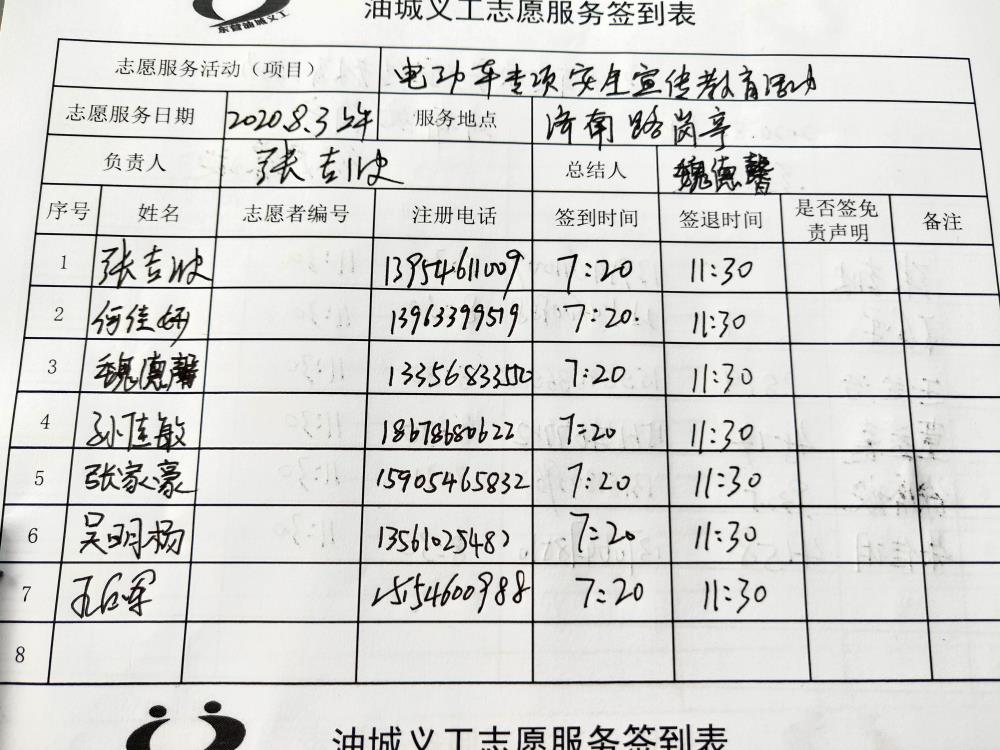 东营油城义工
油城义工志愿服务签到表
志愿服务活动（项目） 电动车专项安全宣传教育活动
志愿服务日期 2020.8.3上午 服务地点 济南路岗亭
负责人 张吉波 总结人 魏德馨
序号 姓名 志愿者编号 注册电话 签到时间 签退时间 是否签免责声明 备注
1 张吉波 13954611009 7:20 11:30
2 何佳妍 13963399519 7:20 11:30
3 魏德馨 13356833550 7:20 11:30
4 孙佳敏 18678680622 7:20 11:30
5 张家豪 15905465832 7:20 11:30
6 吴明杨 7:20 11:30
7 15154600988 7:20 11:30
8
油城义工志愿服务签到表